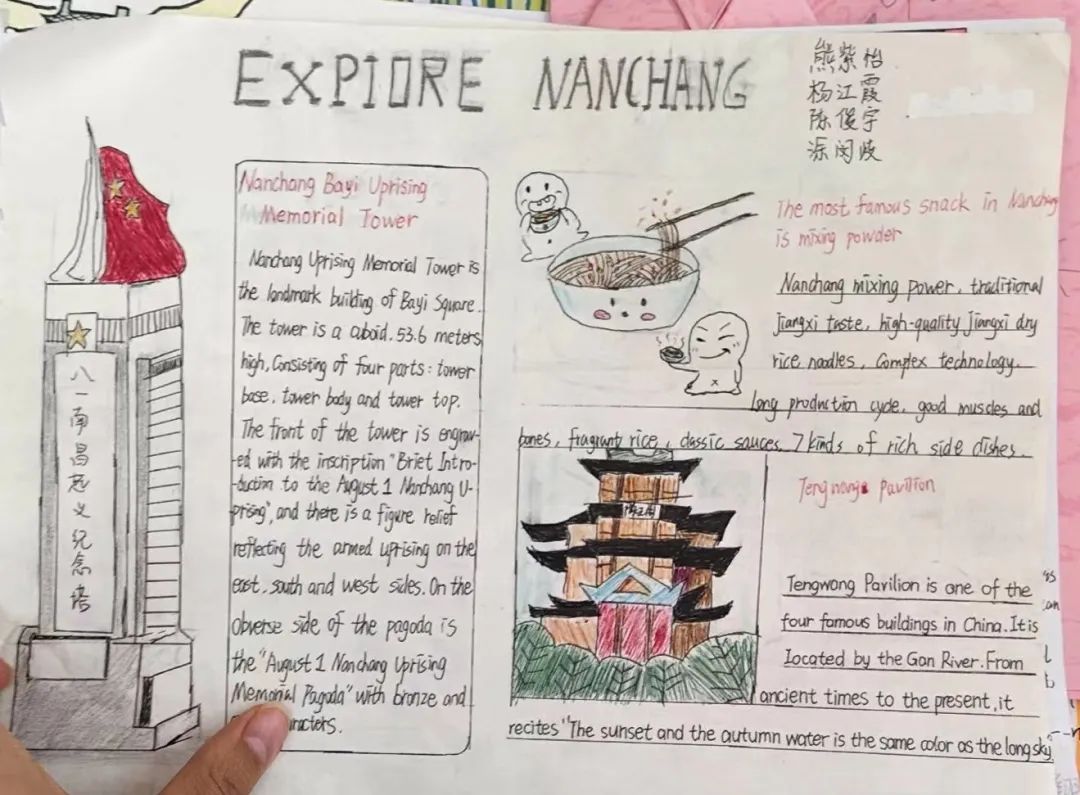 EXPIORE NANCHANG
熊紫怡
杨江霞
陈俊宇
Nanchang Bayi Uprising
Memorial Tower
Nanchang Uprising Memorial Tower is
the landmark building of Bayi Square.
The tower is a aboid. 53.6 meters
high, Consisting of four parts: tower
base, tower body and tower top.
The front of the tower is engrav-
-ed with the inscription "Briet Intro-
-duction to the August 1 Nanchang U-
prising", and there is a figure relief
reflecting the armed uprising on the
east. south and west sides. On the
Obverse side of the pagoda is
the "August 1 Nanchang Uprising
Memorial Pagoda" with bronze and
八一南昌起义纪念塔
The most famous snack in Nanchang
is mixing powder
Nanchang mixing power, traditional
Jiangxi taste, high-quality Jiangxi dry
rice noodles, Complex technology.
long production cycle, good muscles and
bones, fragrant rice, classic sauces, 7 kinds of rich side dishes.
Pavilion
Tengwang Pavilion is one of the
four famous buildings in China. It is
Located by the Gan River. From
ancient times to the present, it
recites "The sunset and the autumn water is the same color as the long sky.